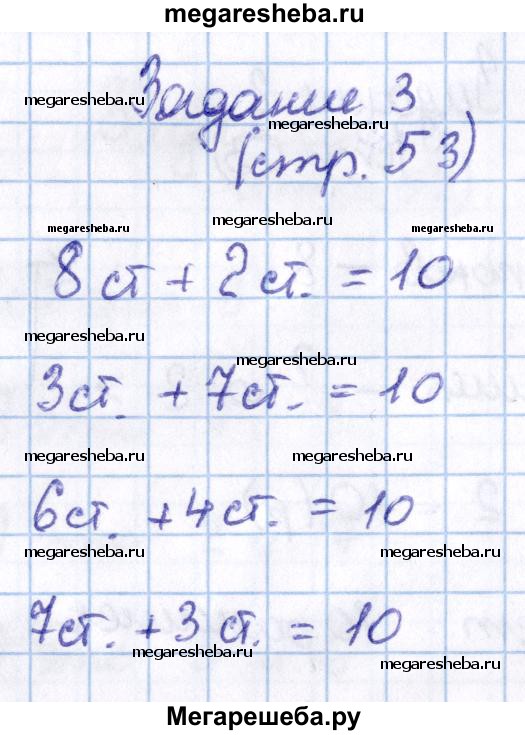 megaresheba.ru
Задание 3
megaresheba.ru
megaresheba.ru
(стр. 53)
megaresheba.ru
megaresheba.ru
8 ст + 2 ст. = 10
megaresheba.ru
megaresheba.ru
3 ст. + 7 ст. = 10
megaresheba.ru
megaresheba.ru
6 ст. + 4 ст. = 10
megaresheba.ru
megaresheba.ru
7 ст. + 3 ст. = 10
megaresheba.ru
megaresheba.ru
Мегарешеба.ру